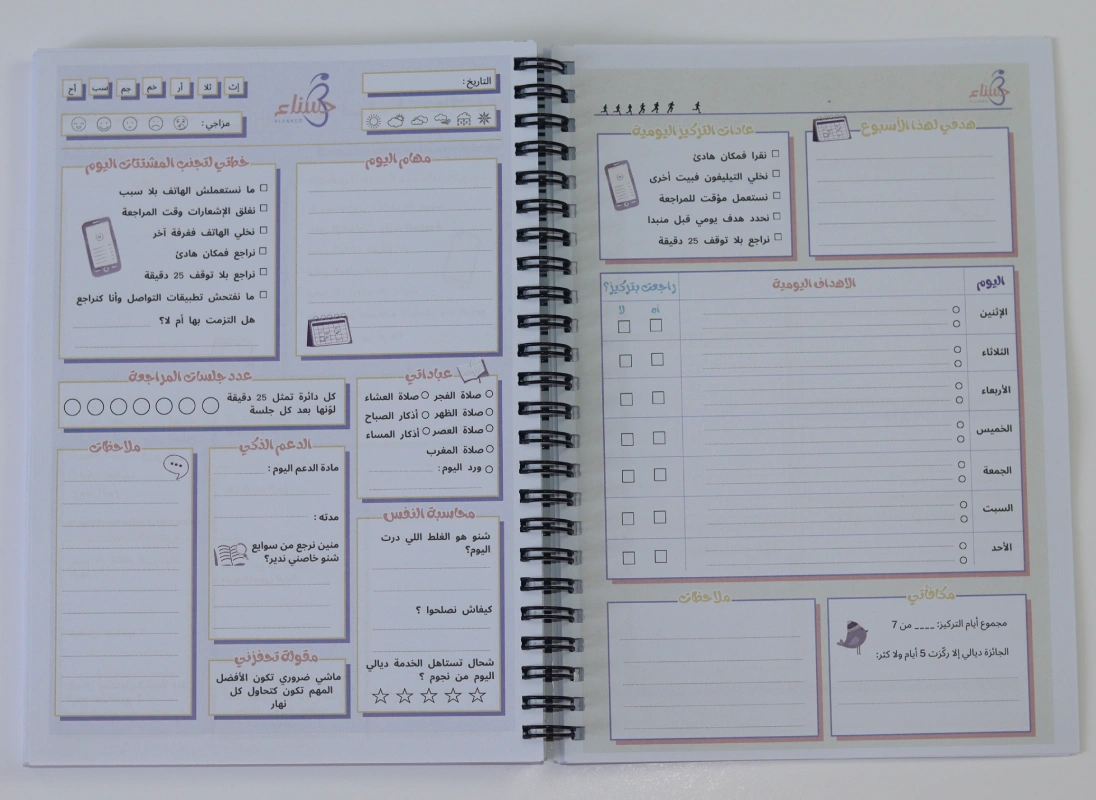 حسناء
هدفي لهذا الأسبوع
عادات التركيز اليومية
نقرا فمكان هادئ
نخلي التيليفون فبيت أخرى
نستعمل مؤقت للمراجعة
نحدد هدف يومي قبل منبدا
نراجع بلا توقف 25 دقيقة
اليوم
الاهداف اليومية
راجعت بتركيز؟
اه
لا
الإثنين
الثلاثاء
الأربعاء
الخميس
الجمعة
السبت
الأحد
مكافأتي
مجموع أيام التركيز: ____ من 7
الجائزة ديالي إلا ركّزت 5 أيام ولا كثر:
ملاحظات
التاريخ:
حسناء
إث
ثلا
أر
خم
جم
سب
أح
مزاجي:
مهام اليوم
خطتي لتجنب المشتتات اليوم
ما نستعملش الهاتف بلا سبب
نغلق الإشعارات وقت المراجعة
نخلي الهاتف ففرفة آخر
نراجع فمكان هادئ
نراجع بلا توقف 25 دقيقة
ما نفتحش تطبيقات التواصل وأنا كنراجع
هل التزمت بها أم لا؟
عباداتي
صلاة الفجر
صلاة العشاء
صلاة الظهر
أذكار الصباح
صلاة العصر
أذكار المساء
صلاة المغرب
ورد اليوم:
عدد جلسات المراجعة
كل دائرة تمثل 25 دقيقة
لوّنها بعد كل جلسة
محاسبة النفس
شنو هو الغلط اللي درت
اليوم؟
كيفاش نصلحوا ؟
شحال تستاهل الخدمة ديالي
اليوم من نجوم ؟
الدعم الذكي
مادة الدعم اليوم:
مدته:
منين نرجع من سوايع
شنو خاصني ندير؟
مقولة تحفزني
ماشي ضروري تكون الأفضل
المهم تكون كتحاول كل
نهار
ملاحظات